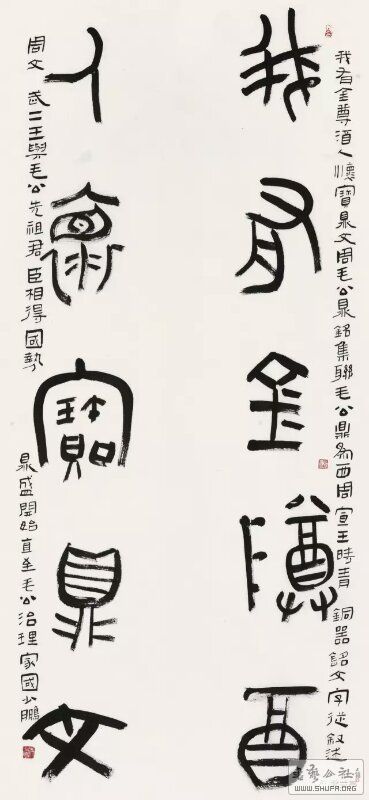 我有金尊酉
人懷寶鼎文
我有金尊酒人懷寶鼎文周毛公鼎銘集聯毛公鼎為西周宣王時青銅器銘文字從敘述
周文武二王與毛公先祖君臣相得國勢
鼎盛開始直至毛公治理家國少鵬
書藝公社
WWW.SHUFA.ORG